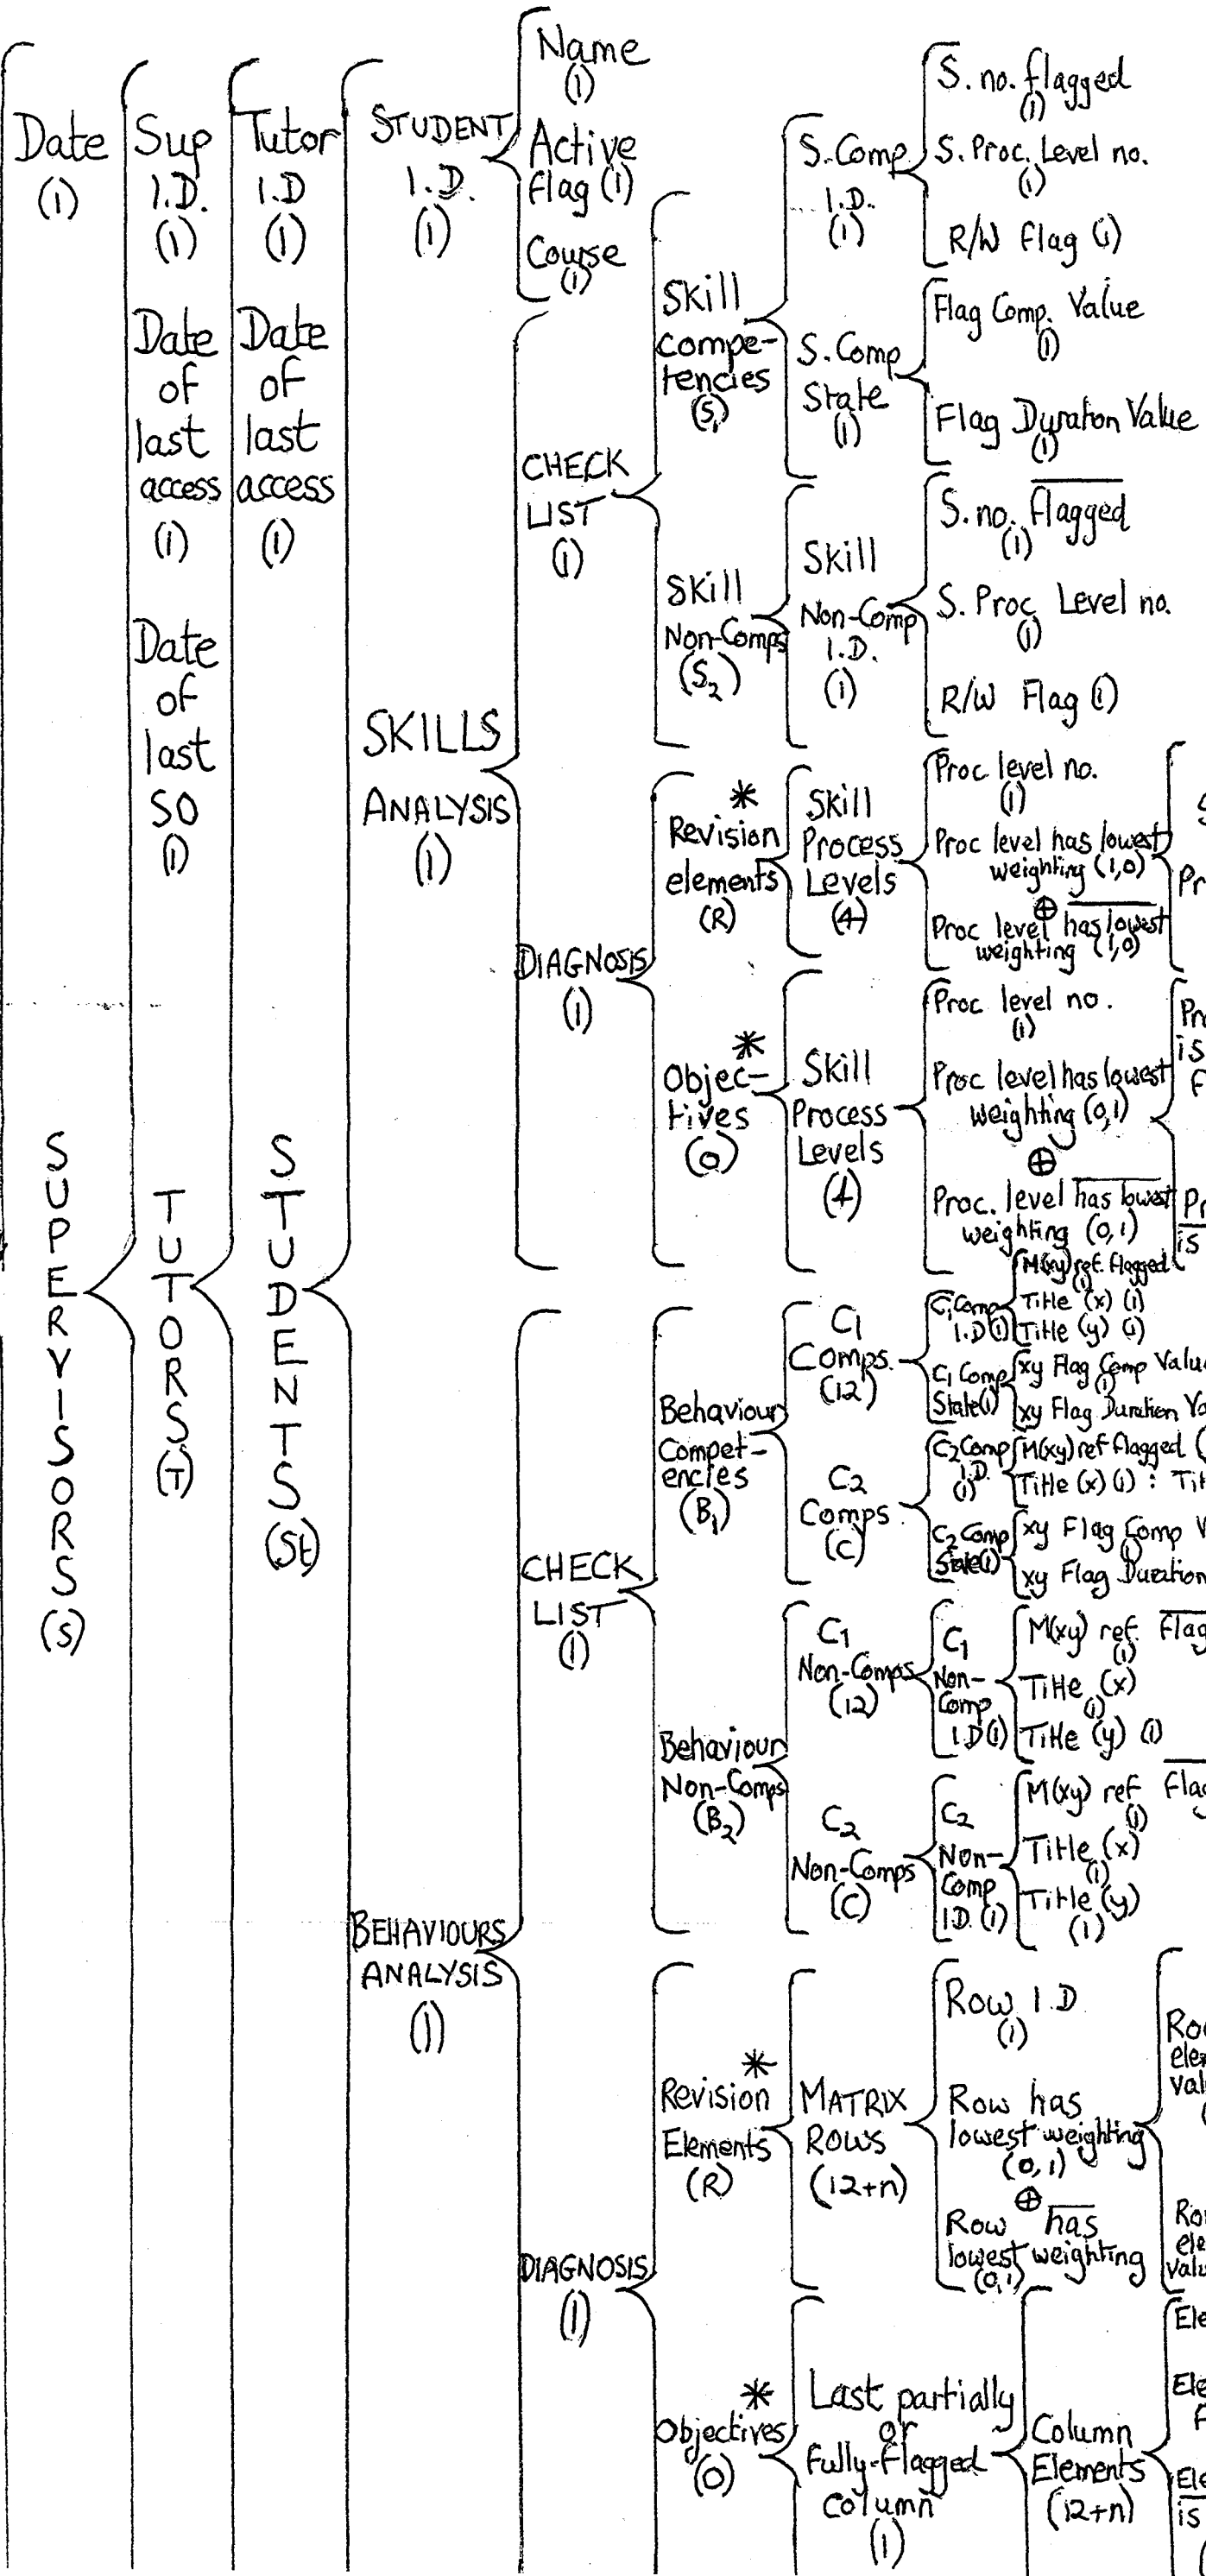 Date
(1)
SUPERVISORS
(S)
Sup
I.D.
(1)
Date
of
last
access
(1)
Date
of
last
SO
(1)
TUTORS
(T)
Tutor
I.D
(1)
Date
of
last
access
(1)
STUDENTS
(St)
STUDENT
I.D.
(1)
Name
(1)
Active
flag (1)
Course
(1)
SKILLS
ANALYSIS
(1)
CHECK
LIST
(1)
Skill
compe-
tencies
(S1)
S.Comp
I.D.
(1)
S. no. flagged
(1)
S. Proc. Level no.
(1)
R/W Flag (1)
S. Comp
State
(1)
Flag Comp. Value
(1)
Flag Duration Value
(1)
Skill
Non-Comps
(S2)
Skill
Non-Comp
I.D.
(1)
S. no. flagged
(1)
S. Proc Level no.
(1)
R/W Flag (1)
DIAGNOSIS
(1)
*
Revision
elements
(R)
Skill
Process
Levels
(4)
Proc level no.
(1)
Proc level has lowest
weighting (1,0)
⊕
Proc level has lowest
weighting (1,0)
S
Pr
*
Objec-
tives
(O)
Skill
Process
Levels
(4)
Proc level no.
(1)
Proc level has lowest
weighting (0,1)
⊕
Proc. level has lowest
weighting (0,1)
Pr
is
F
Pr
is
BEHAVIOURS
ANALYSIS
(1)
CHECK
LIST
(1)
Behaviour
Compet-
encies
(B1)
C1
Comps.
(12)
C1 Comp
I.D (1)
M(xy) ref. flagged
(1)
Title (x) (1)
Title (y) (1)
C1 Comp
State (1)
xy Flag Comp Value
(1)
xy Flag Duration Va
C2
Comps
(C)
C2 Comp
I.D.
(1)
M(xy) ref flagged (
Title (x) (1) : Tit
C2 Comp
State (1)
xy Flag Comp V
(1)
xy Flag Duration
Behaviour
Non-Comps
(B2)
C1
Non-Comps
(12)
C1
Non-
Comp
I.D (1)
M(xy) ref. flag
(1)
Title (x)
(1)
Title (y) (1)
C2
Non-Comps
(C)
C2
Non-
Comp
I.D. (1)
M(xy) ref flag
(1)
Title (x)
(1)
Title (y)
(1)
DIAGNOSIS
(1)
*
Revision
Elements
(R)
MATRIX
ROWS
(12+n)
Row I.D
(1)
Row has
lowest weighting
(0,1)
⊕
Row has
lowest weighting
(0,1)
Row
ele
val
Row
ele
valu
*
Objectives
(O)
Last partially
or
fully-flagged
column
(1)
Column
Elements
(12+n)
Ele
Ele
F
Ele
is